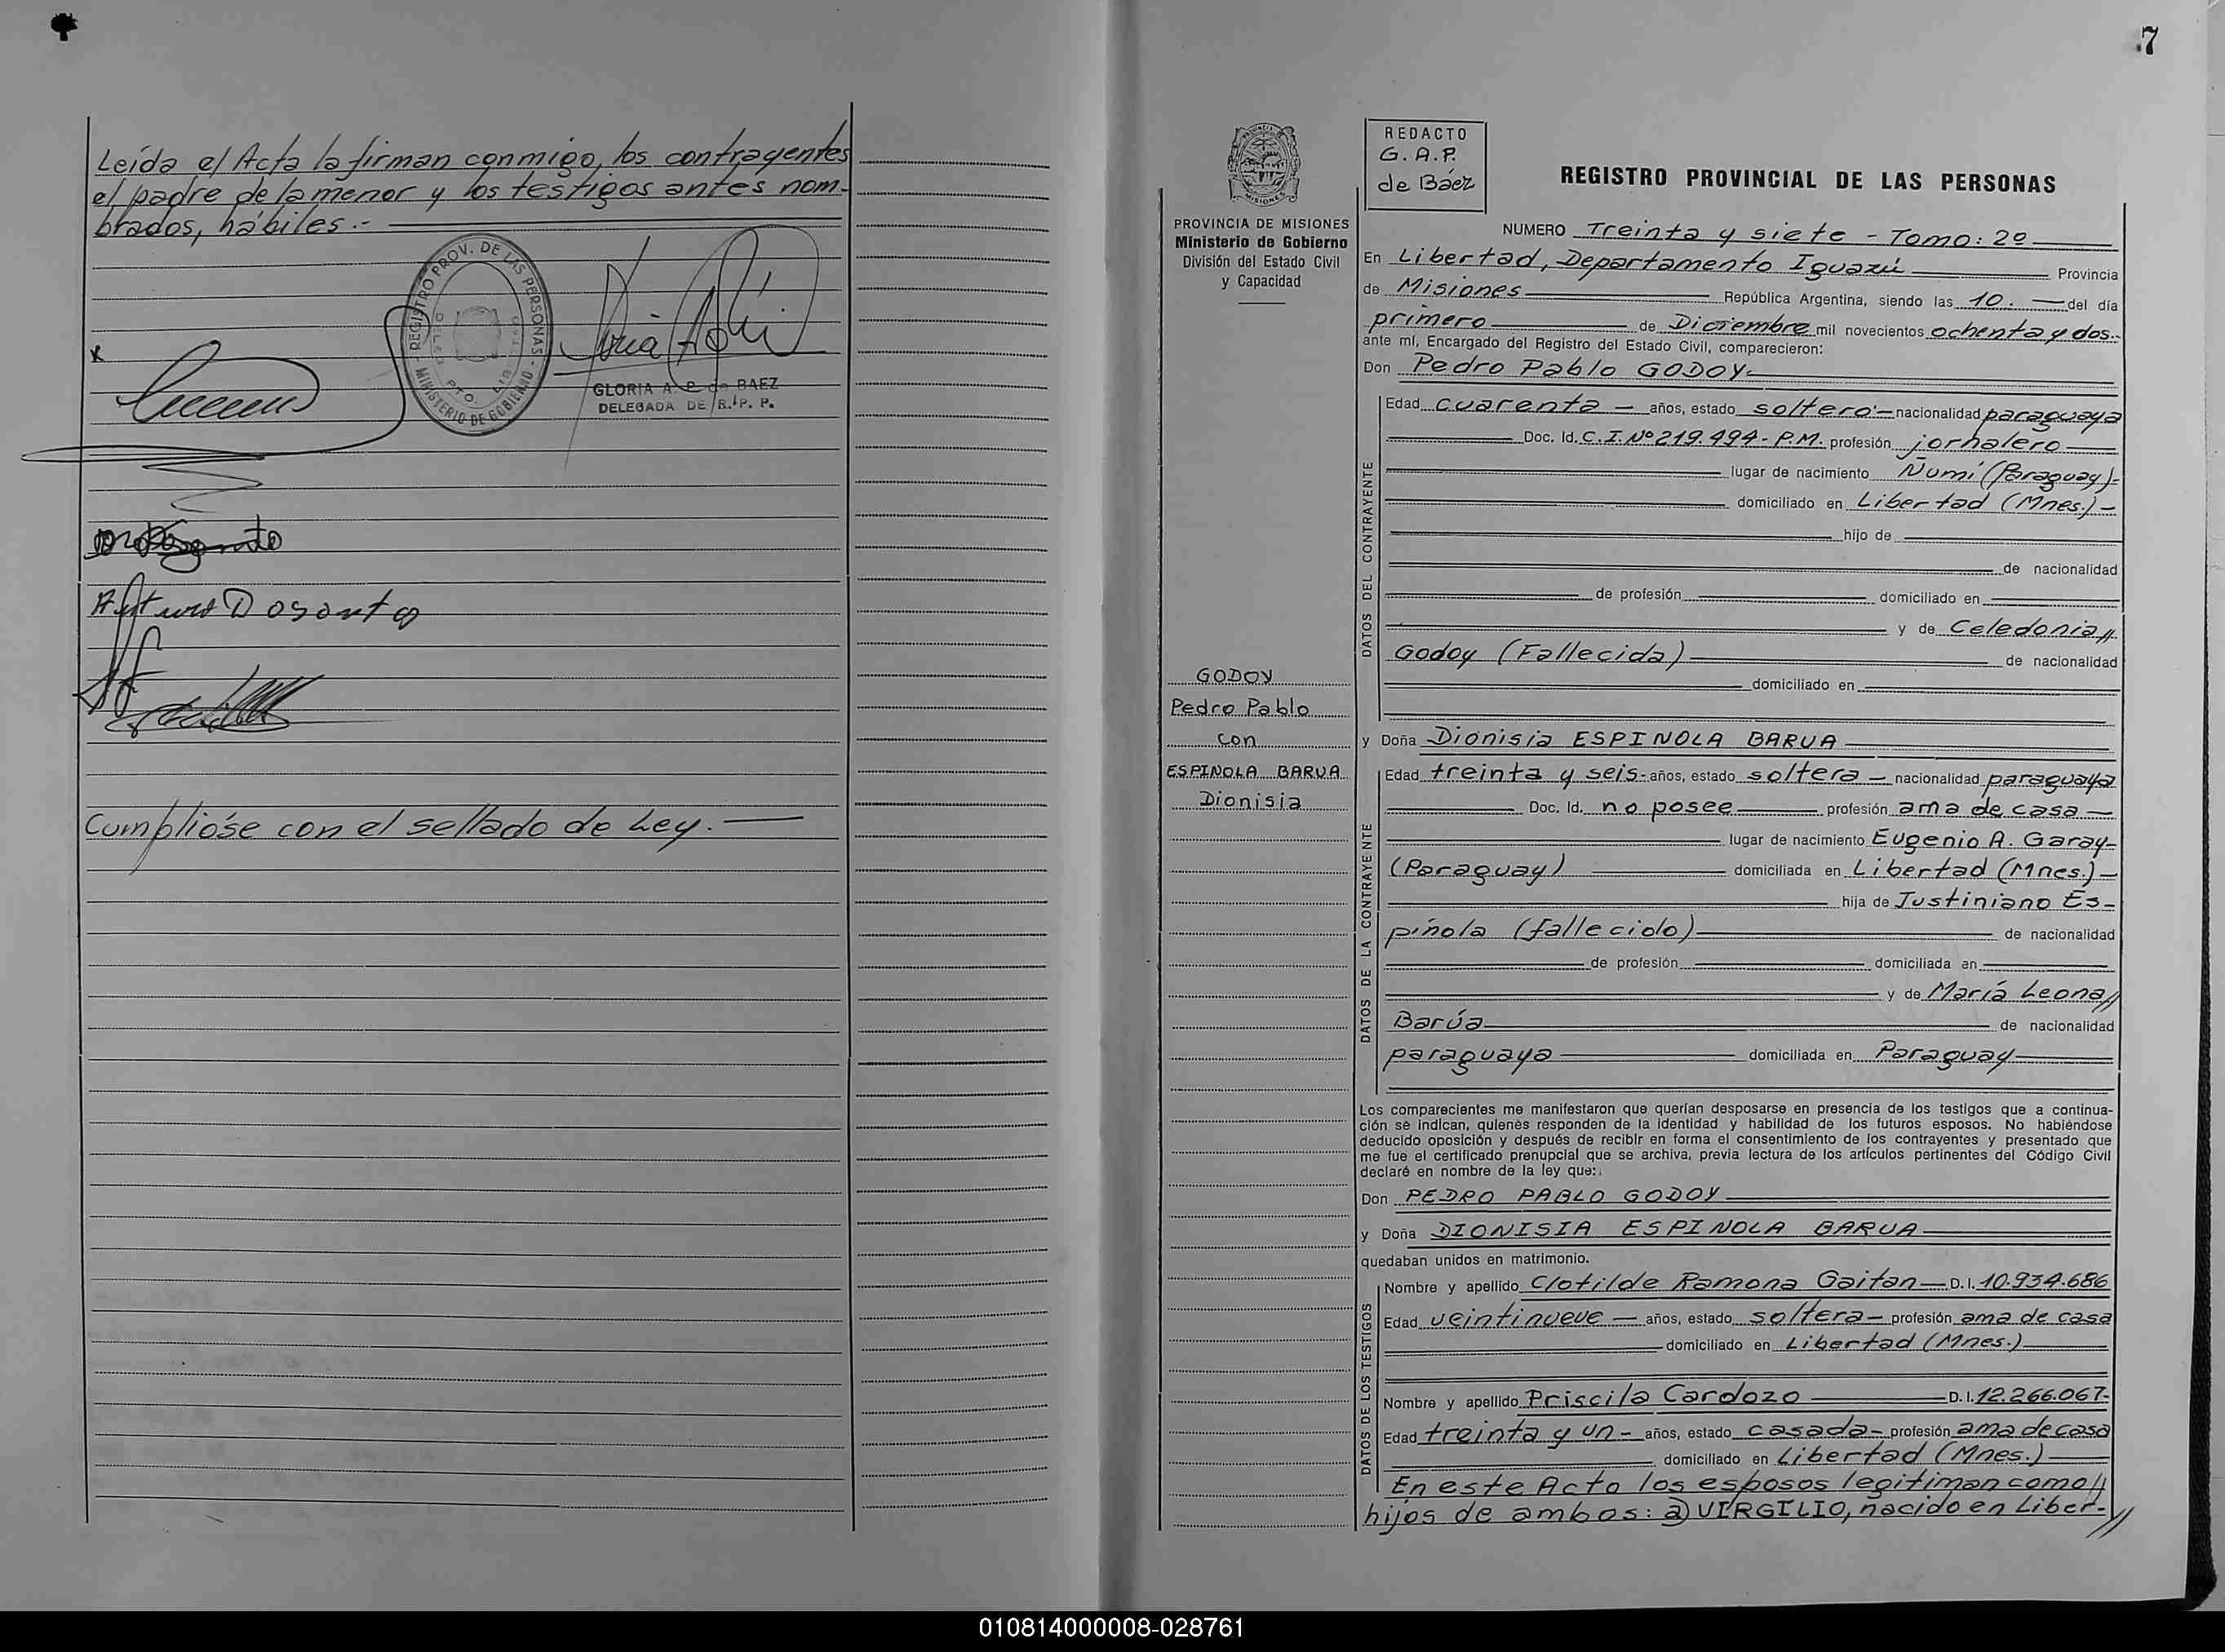 Leída el Acta la firman conmigo, los contrayentes
el padre de la menor y los testigos antes nom-
brados, hábiles.-
REGISTRO PROV. DE LAS PERSONAS
MINISTERIO DE GOBIERNO
x
GLORIA A. P. de BAEZ
DELEGADA DE R. P. P.
Arturo Dosanto
Cumplióse con el sellado de Ley.
7
PROVINCIA DE MISIONES
Ministerio de Gobierno
División del Estado Civil
y Capacidad
GODOY
Pedro Pablo
con
ESPINOLA BARUA
Dionisia
REDACTO
G. A. P.
de Báez
REGISTRO PROVINCIAL DE LAS PERSONAS
NUMERO Treinta y siete - Tomo: 2º
En Libertad, Departamento Iguazú Provincia
de Misiones República Argentina, siendo las 10. del día
primero de Diciembre mil novecientos ochenta y dos.-
ante mí, Encargado del Registro del Estado Civil, comparecieron:
Don Pedro Pablo GODOY.
DATOS DEL CONTRAYENTE
Edad cuarenta - años, estado soltero - nacionalidad paraguaya
Doc. Id. C. I. Nº 219.494 - P.M. profesión jornalero
lugar de nacimiento Ñumí (Paraguay)-
domiciliado en Libertad (Mnes.) -
hijo de
de nacionalidad
de profesión domiciliado en
y de Celedonia //
Godoy (Fallecida) de nacionalidad
domiciliado en
y Doña Dionisia ESPINOLA BARUA
DATOS DE LA CONTRAYENTE
Edad treinta y seis - años, estado soltera - nacionalidad paraguaya
Doc. Id. no posee profesión ama de casa -
lugar de nacimiento Eugenio A. Garay-
(Paraguay) domiciliada en Libertad (Mnes.) -
hija de Justiniano Es-
pínola (fallecido) de nacionalidad
de profesión domiciliada en
y de María Leona //
Barúa de nacionalidad
paraguaya domiciliada en Paraguay
Los comparecientes me manifestaron que querían desposarse en presencia de los testigos que a continua-
ción se indican, quienes responden de la identidad y habilidad de los futuros esposos. No habiéndose
deducido oposición y después de recibir en forma el consentimiento de los contrayentes y presentado que
me fue el certificado prenupcial que se archiva, previa lectura de los artículos pertinentes del Código Civil
declaré en nombre de la ley que:
Don PEDRO PABLO GODOY
y Doña DIONISIA ESPINOLA BARUA
quedaban unidos en matrimonio.
DATOS DE LOS TESTIGOS
Nombre y apellido Clotilde Ramona Gaitan D. I. 10.934.686
Edad veintinueve - años, estado soltera - profesión ama de casa
domiciliado en Libertad (Mnes.)
Nombre y apellido Priscila Cardozo D. I. 12.266.067-
Edad treinta y un - años, estado casada - profesión ama de casa
domiciliado en Libertad (Mnes.)
En este Acto los esposos legitiman como //
hijos de ambos: a) VIRGILIO, nacido en Liber- //
010814000008-028761